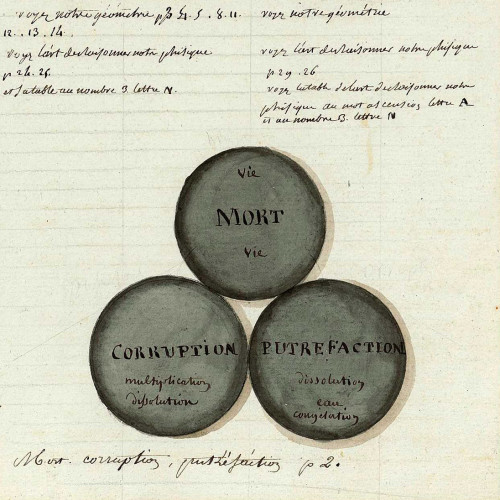 voyez notre géométrie p 3. 4. 5. 8. 11.
12. 13. 14.
voyez l'art de raisonner notre phisique
p 24. 25.
et sa table au nombre 3 lettre N.
voyez notre géométrie
voyez l'art de raisonner notre phisique
p 29. 26
voyez la table de l'art de raisonner notre
phisique au mot ascension lettre A
et au nombre 3. lettre N
vie
MORT
vie
CORRUPTION
multiplication
dissolution
PUTREFACTION
dissolution
eau
congélation
Mort. corruption, putréfaction p 2.